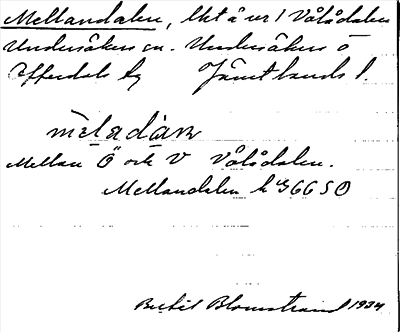 Mellandalen, lht å ver / Vålådalen
Undersåkers sn. Undersåkers o
Offerdals tg Jämtlands l.
mèladàn
Mellan Ö och V Vålådalen.
Mellandalen k 36650
Bertil Blomstrand 1934